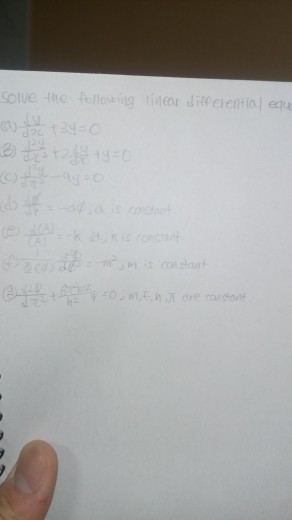 Solve the following linear differential equ
(a) dy/dx + 3y = 0
(B) d²y/dx² + 2 dy/dx + y = 0
(C) d²y/dx² - 9y = 0
(d) dφ/dt = -aφ, a is constant
(e) d(A)/(A) = -k dt, k is constant
(f) 1/Φ(φ) = -m², m is constant
(g) + ψ = 0, m, E, h, π are constant